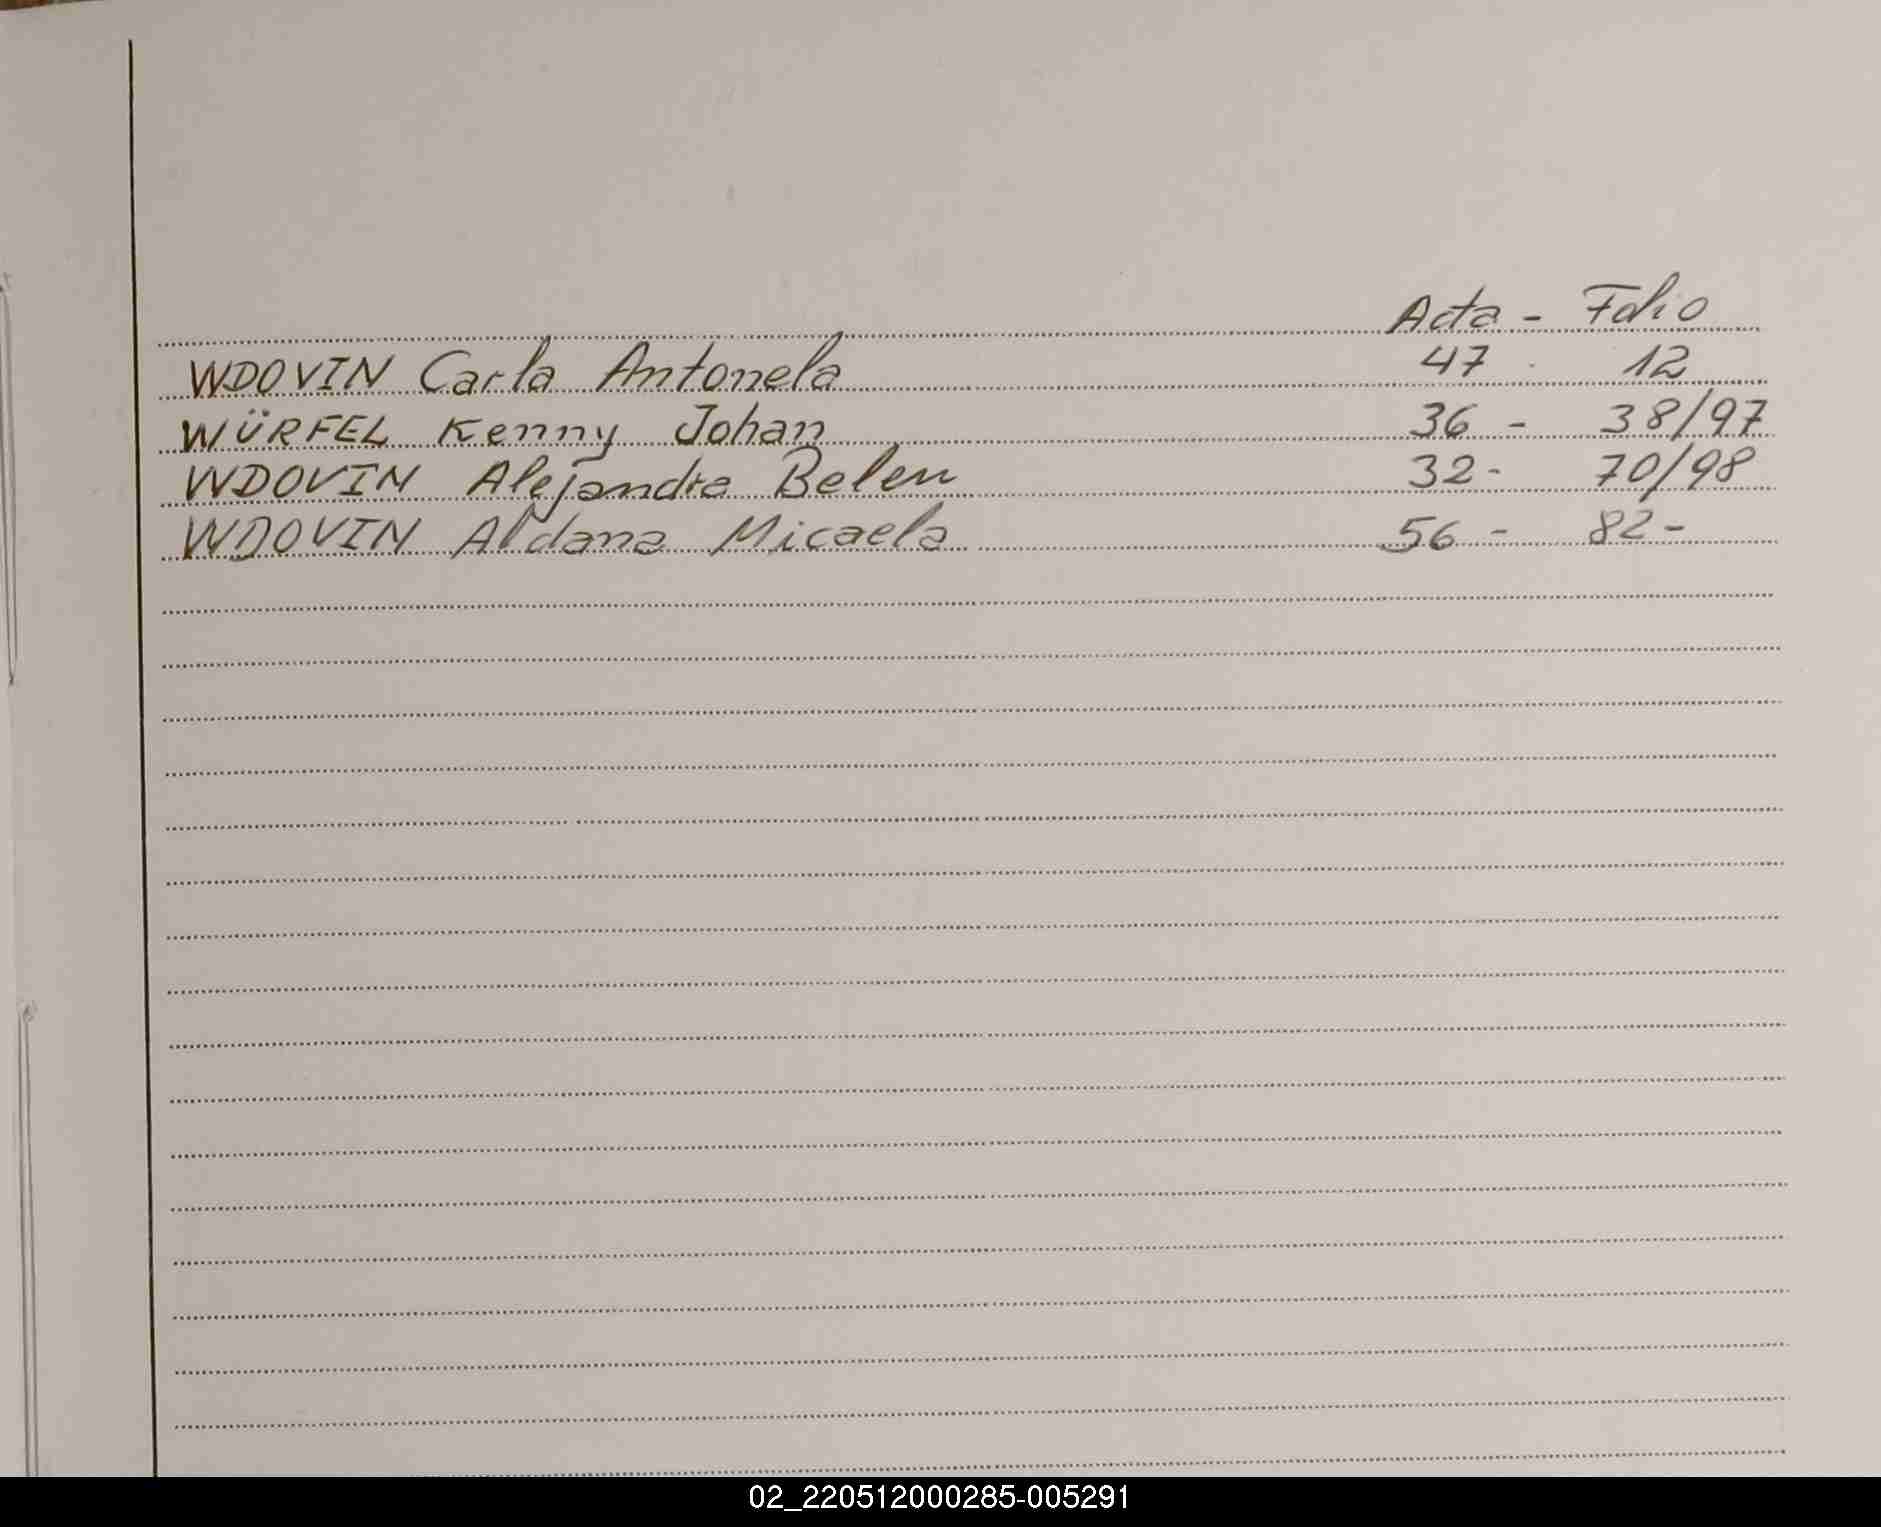 Acta - Folio
WDOVIN Carla Antonela 47 - 12
WÜRFEL Kenny Johan 36 - 38/97
WDOVIN Alejandra Belen 32 - 70/98
WDOVIN Aldana Micaela 56 - 82 -
02_220512000285-005291